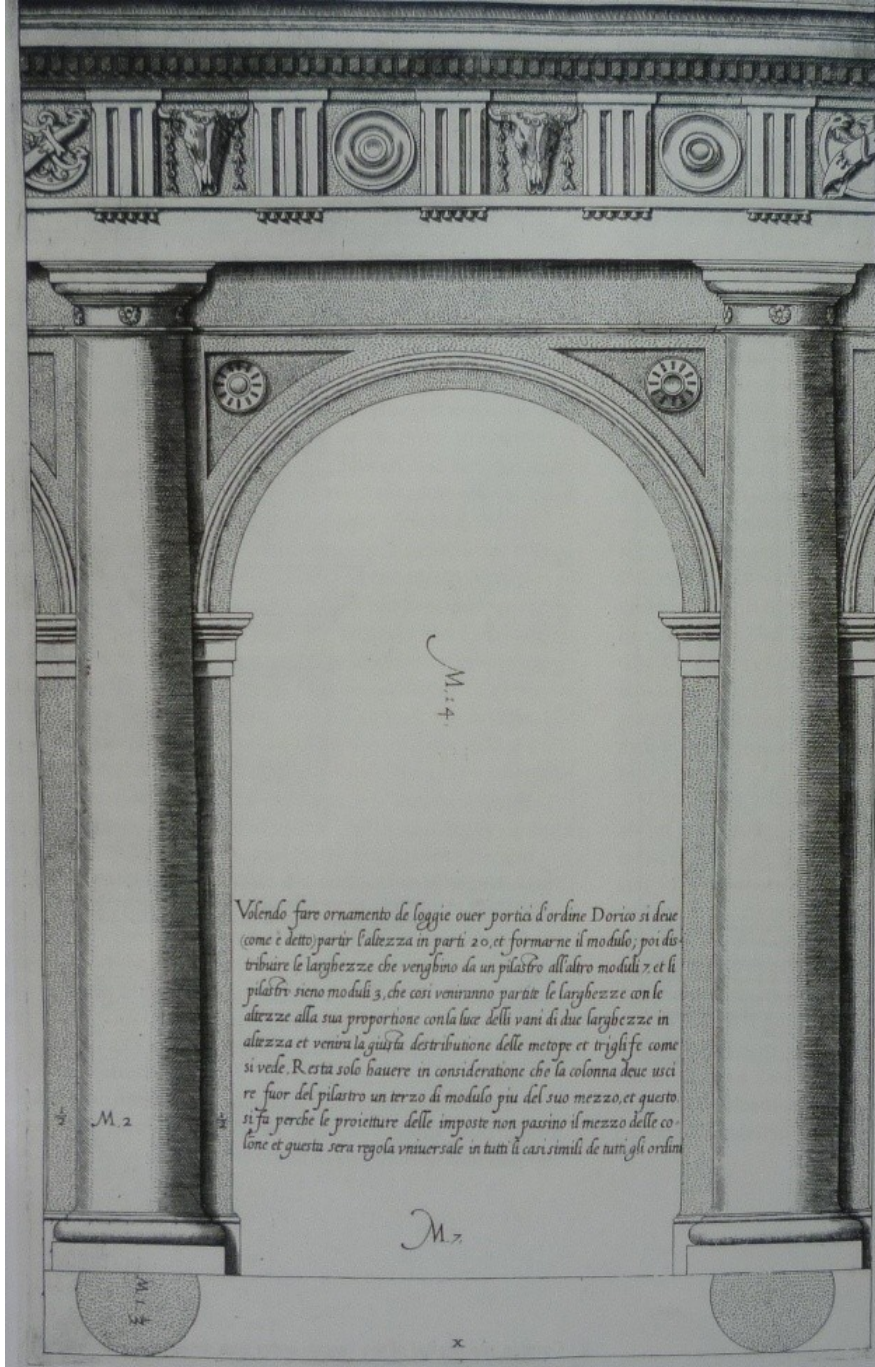 M. 14.
Volendo fare ornamento de loggie ouer portici d'ordine Dorico si deue
(come è detto) partir l'altezza in parti 20, et formarne il modulo; poi dis-
tribuire le larghezze che venghino da un pilastro all'altro moduli 7, et li
pilastri sieno moduli 3, che cosi veniranno partite le larghezze con le
altezze alla sua proportione con la luce delli vani di due larghezze in
altezza et venira la giusta destributione delle metope et triglife come
si vede. Resta solo hauere in consideratione che la colonna deue usci
re fuor del pilastro un terzo di modulo piu del suo mezzo, et questo
si fa perche le proietture delle imposte non passino il mezzo delle co-
lone et questa sera regola vniuersale in tutti li casi simili de tutti gli ordini
½ M. 2 ½
M. 7.
M. 1. ⅓
X